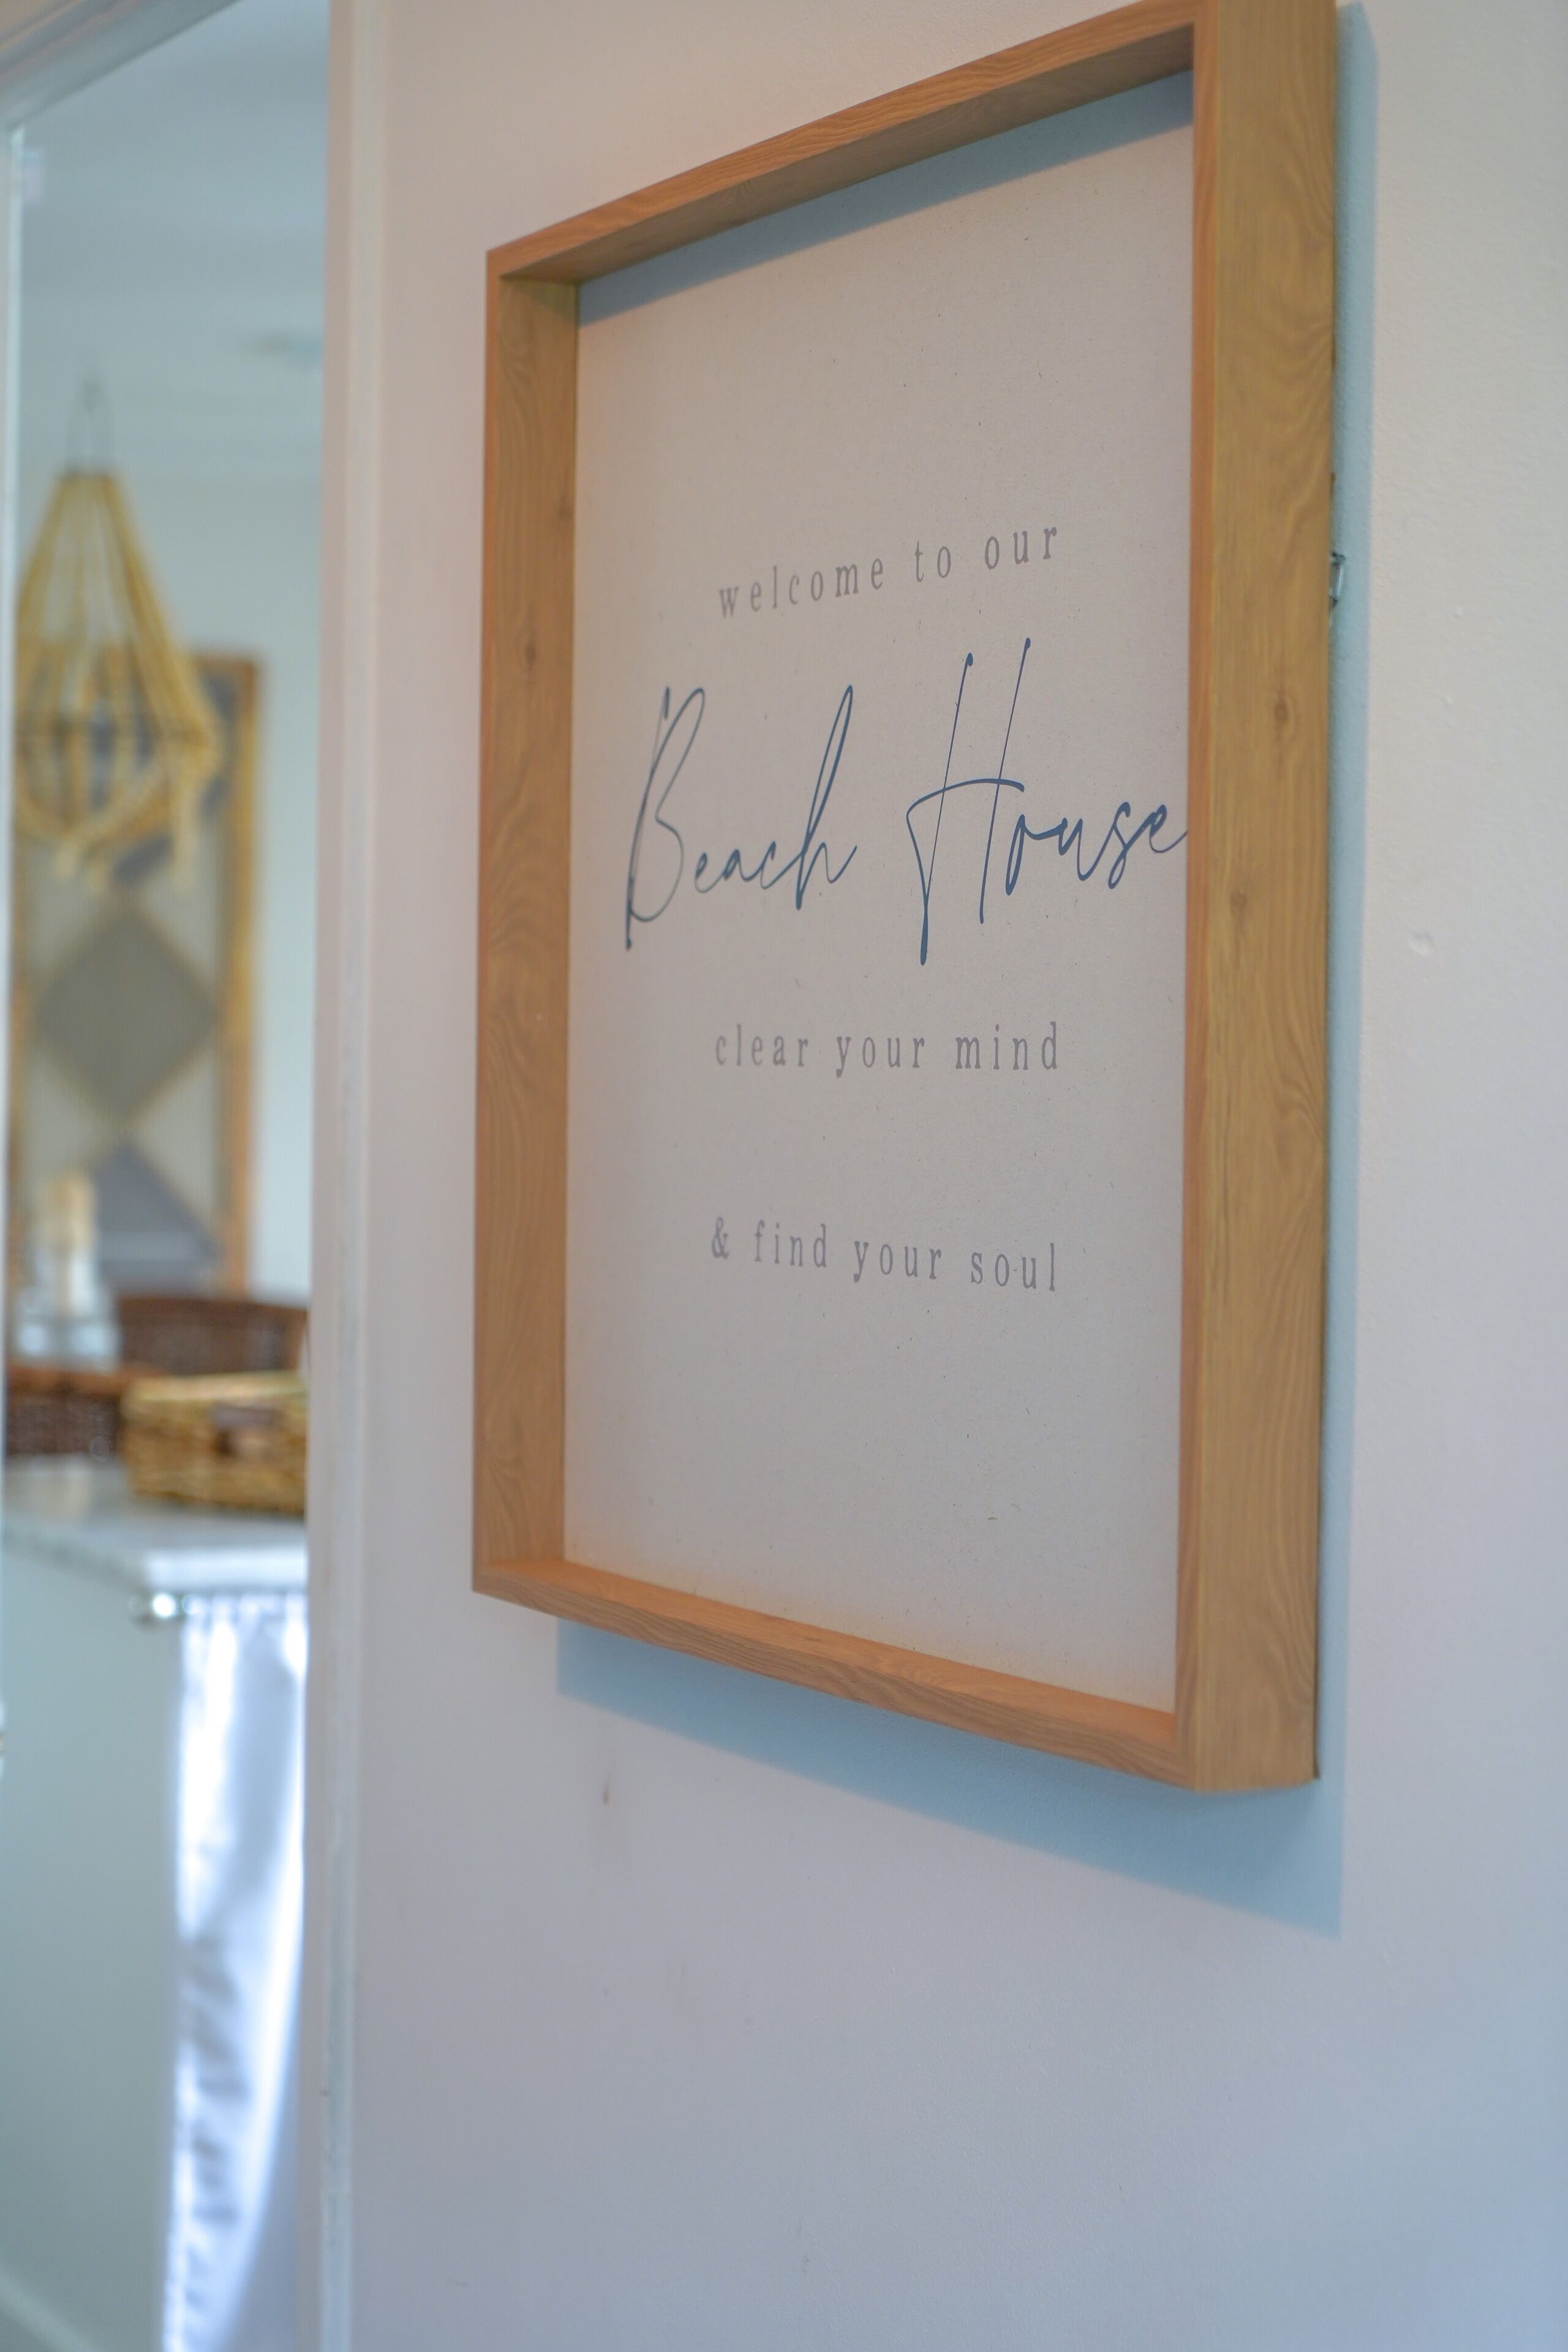 welcome to our
Beach House
clear your mind
& find your soul